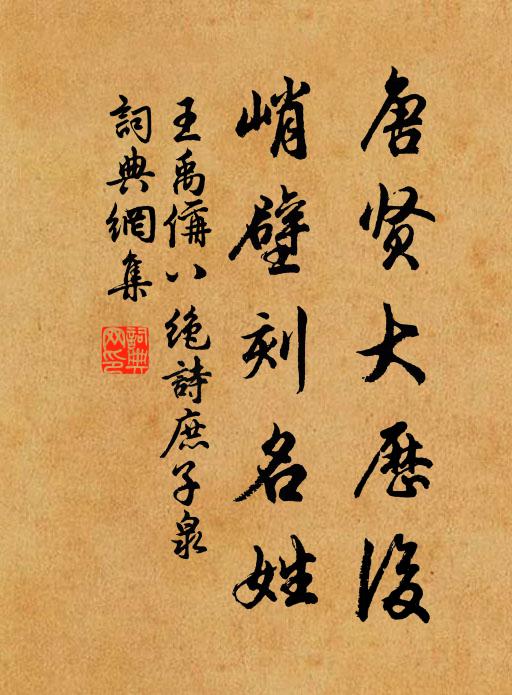 唐贤大历後
峭壁刻名姓
王禹偁八绝詩庶子泉
詞典網集
詞典网印